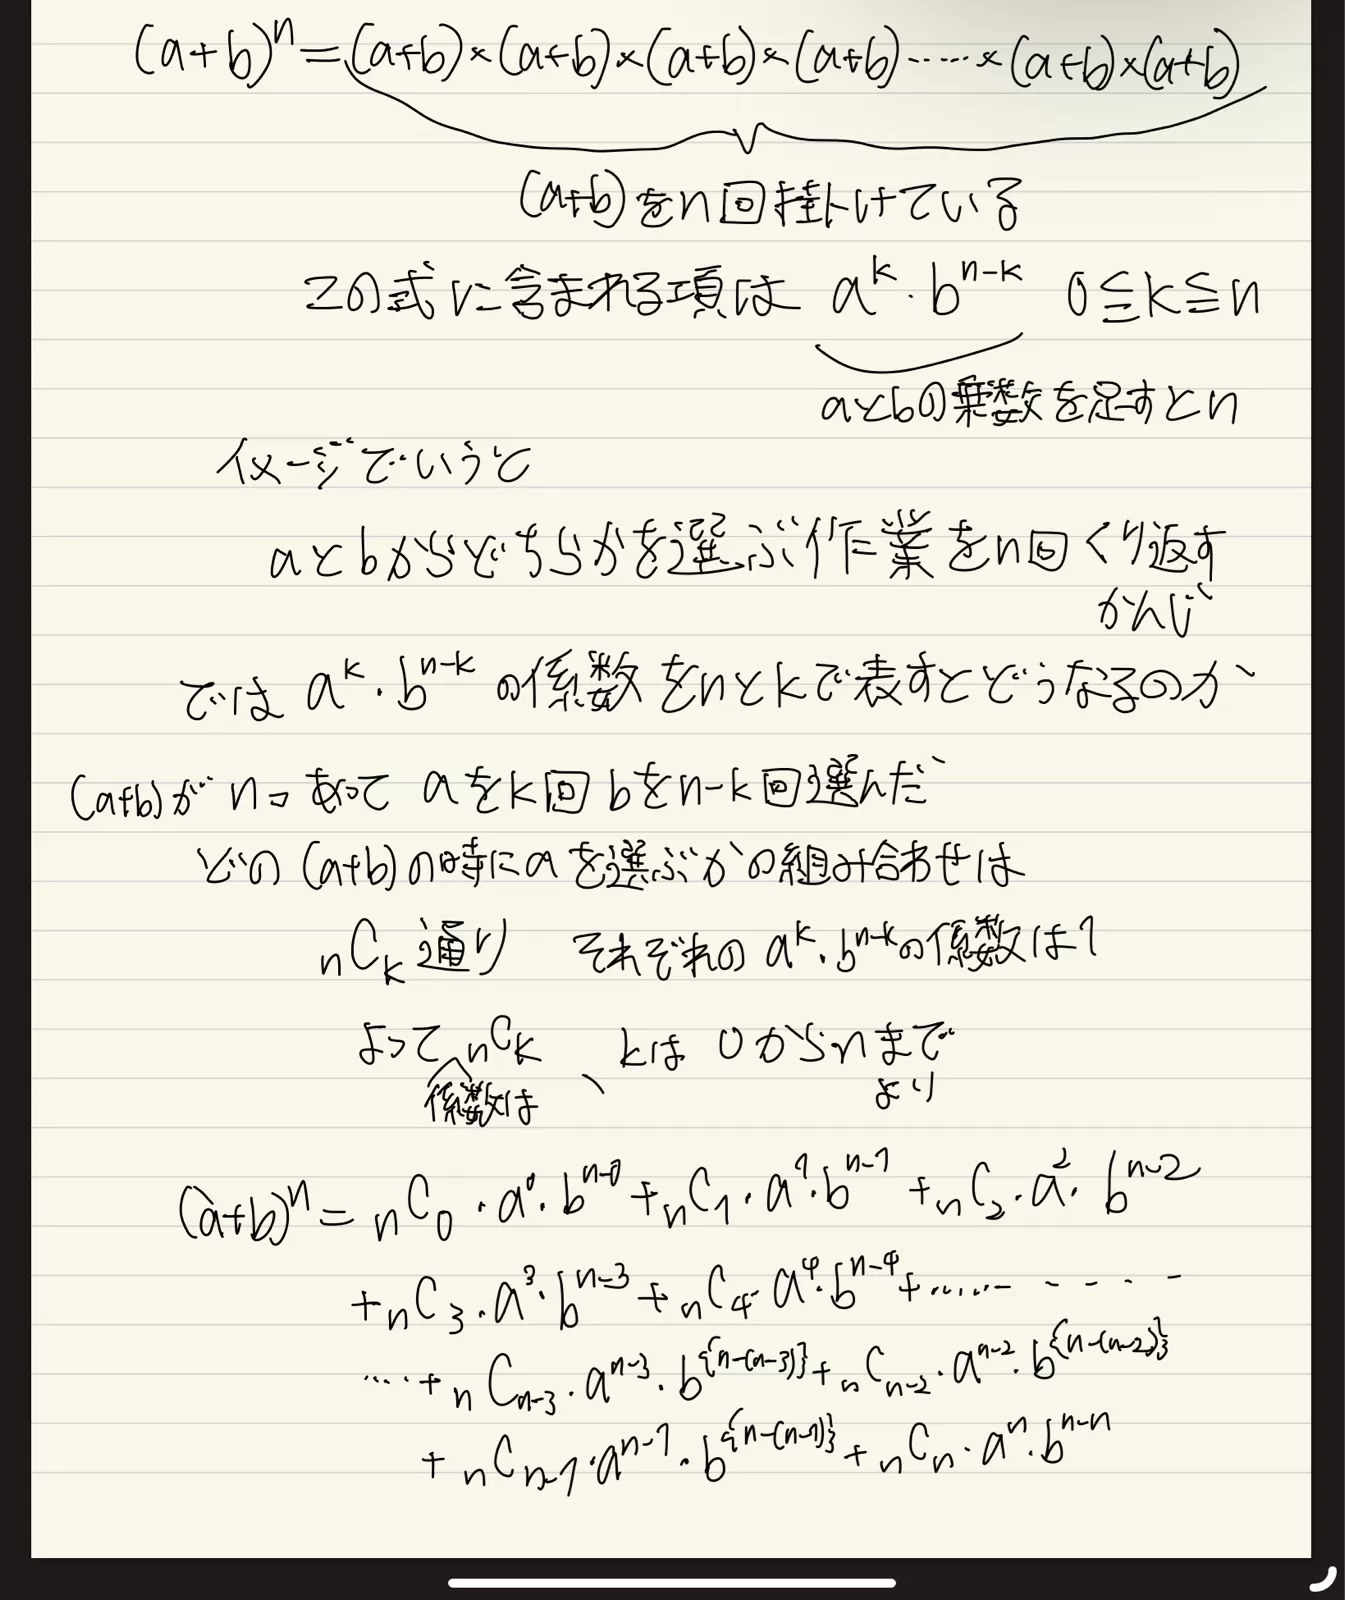 (a+b)^n=(a+b)×(a+b)×(a+b)×(a+b)……×(a+b)×(a+b)
(a+b)をn回掛けている
この式に含まれる項は a^k・b^{n-k} 0≦k≦n
aとbの乗数を足すとn
イメージでいうと
aとbからどちらかを選ぶ作業をn回くり返す
かんじ
では a^k・b^{n-k} の係数をnとkで表すとどうなるのか
(a+b)がnコあって aをk回 bをn-k回選んだ
どの(a+b)の時にaを選ぶかの組み合わせは
nCk通り それぞれの a^k・b^{n-k}の係数は1
よって nCk 、 kは 0からnまで
係数は より
(a+b)^n = nC0・a^0・b^{n-0} + nC1・a^1・b^{n-1} + nC2・a^2・b^{n-2}
+ nC3・a^3・b^{n-3} + nC4・a^4・b^{n-4} + ……- - - - -
…+ nC{n-3}・a^{n-3}・b^{{n-(n-3)}} + nC{n-2}・a^{n-2}・b^{{n-(n-2)}}
+ nC{n-1}・a^{n-1}・b^{{n-(n-1)}} + nCn・a^n・b^{n-n}